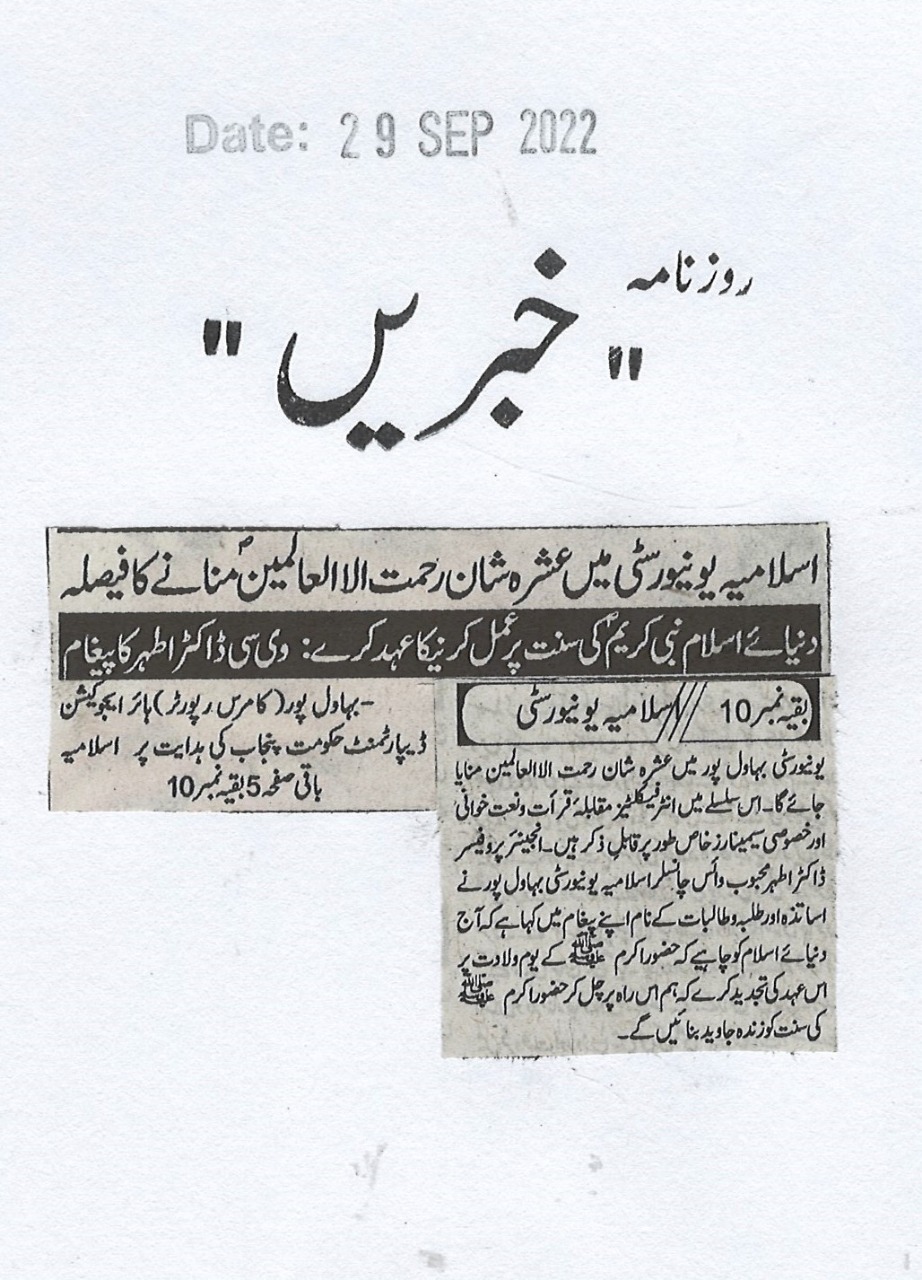 Date: 29 SEP 2022
روزنامہ
"خبریں"
اسلامیہ یونیورسٹی میں عشرہ شان رحمت الاالعالمینؐ منانے کا فیصلہ
دنیائے اسلام نبی کریمؐ کی سنت پر عمل کرنیکا عہد کرے: وی سی ڈاکٹر اطہر کا پیغام
بہاول پور (کامرس رپورٹر) ہائر ایجوکیشن-
ڈیپارٹمنٹ حکومت پنجاب کی ہدایت پر اسلامیہ
باقی صفحہ 5 بقیہ نمبر 10
بقیہ نمبر 10 /// اسلامیہ یونیورسٹی
یونیورسٹی بہاول پور میں عشرہ شان رحمت الاالعالمین منایا
جائے گا۔ اس سلسلے میں انٹر فیکلٹیز مقابلہ قرأت و نعت خوانی
اور خصوصی سیمینارز خاص طور پر قابل ذکر ہیں۔ انجینئر پروفیسر
ڈاکٹر اطہر محبوب وائس چانسلر اسلامیہ یونیورسٹی بہاول پور نے
اساتذہ اور طلبہ و طالبات کے نام اپنے پیغام میں کہا ہے کہ آج
دنیائے اسلام کو چاہیے کہ حضور اکرم ﷺ کے یوم ولادت پر
اس عہد کی تجدید کرے کہ ہم اس راہ پر چل کر حضور اکرم ﷺ
کی سنت کو زندہ جاوید بنائیں گے۔